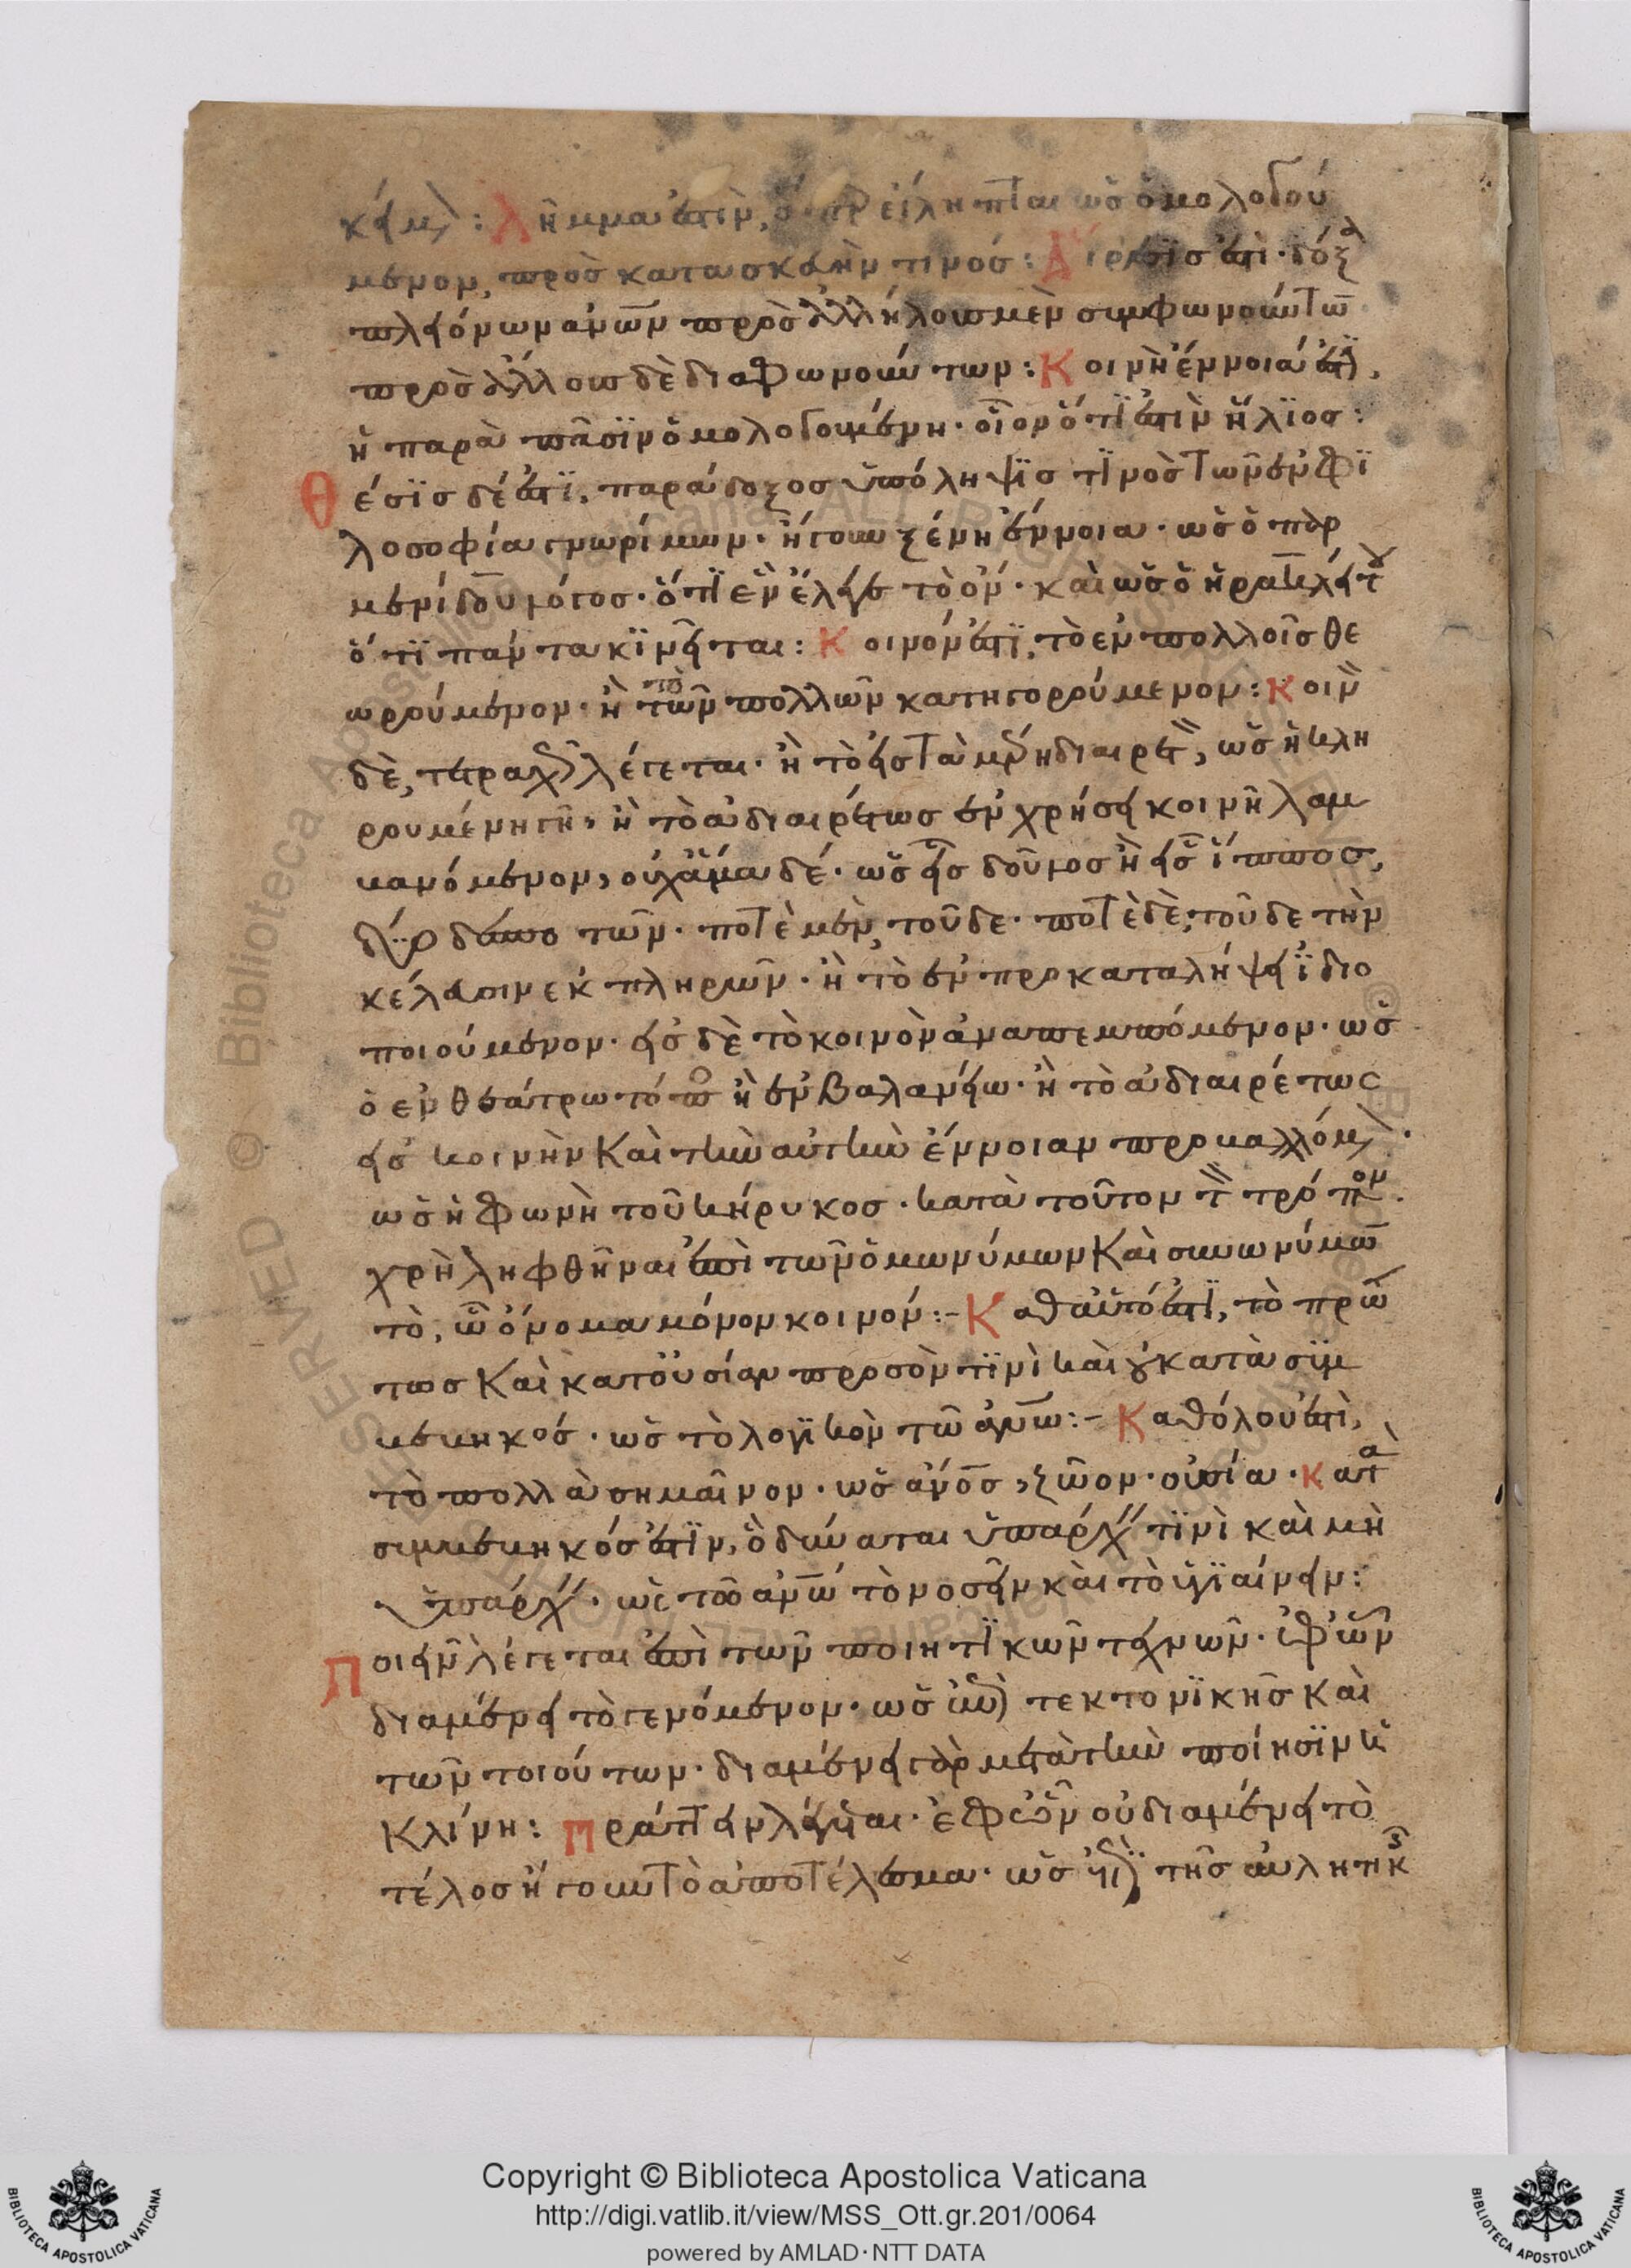 κείμενον: Λῆμμα ἐστὶν, ὅπερ εἴληπται ὡς ὁμολογού
μενον, πρὸς κατασκευὴν τινός: Αἵρεσίς ἐστι· δόξα
πλειόνων ἀνων πρὸς ἀλλήλους μὲν συμφωνούντων
πρὸς ἄλλους δὲ διαφωνούντων: Κοινὴ ἔννοιά ἐστιν,
ἡ παρὰ πᾶσϊν ὁμολογουμένη· οἷον ὅτϊ ἐστὶν ἥλϊος:
Θέσϊς δέ ἐστϊ, παράδοξος ὑπόληψϊς τϊνὸς τῶν ἐν φϊ
λοσοφία γνωρίμων· ἤγουν ξένη ἔννοια· ὡς ὁ παρ
μενίδου λόγος· ὅτϊ ἓν ἔλεγε τὸ ὄν· καὶ ὡς ὁ ἡρακλείτου
ὅτϊ πάντα κϊνεῖται: Κοινόν ἐστϊ, τὸ ἐν πολλοῖς θε
ωρούμενον· ἢ τὸ τῶν πολλῶν κατηγορούμενον: Κοινὸν
δὲ, τετραχῶς λέγεται· ἢ τὸ εἰς τὰ μέρη διαιρετὸν, ὡς ἡ κλη
ρουμένη γῆ, ἢ τὸ ἀδιαιρέτως ἐν χρήσει κοινῆ λαμ
βανόμενον, οὐχ ἅμα δέ· ὡς εἷς δοῦλος ἢ εἷς ἵππος,
δύο δεσποτῶν· ποτὲ μὲν, τοῦδε· ποτὲ δὲ, τοῦδε τὴν
κέλευσιν ἐκπληρῶν· ἢ τὸ ἐν προκαταλήψει ἰδιο
ποιούμενον· εἰς δὲ τὸ κοινὸν ἀναπεμπόμενον· ὡς
ὁ ἐν θεάτρω τόπος ἢ ἐν βαλανείω· ἢ τὸ ἀδιαιρέτως
εἰς κοινὴν καὶ τὴν αὐτὴν ἔννοιαν προβαλλόμενον·
ὡς ἡ φωνὴ τοῦ κήρυκος· κατὰ τοῦτον τὸν τρόπον·
χρὴ ληφθῆναι ἐπὶ τῶν ὁμωνύμων καὶ συνωνύμων
τὸ, ὧν ὄνομα μόνον κοινόν:- Καθ αὑτό ἐστϊ, τὸ πρώ
τως καὶ κατ οὐσίαν προσὸν τϊνὶ καὶ οὐ κατὰ συμ
βεβηκός· ὡς τὸ λογϊκὸν τῶ ἀνω:- Καθόλου ἐστὶ,
τὸ πολλὰ σημαῖνον· ὡς ἀνος, ζῶον· οὐσία· Κατὰ
συμβεβηκός ἐστϊν, ὃ δύναται ὑπάρχειν τϊνὶ καὶ μὴ
ὑπάρχειν· ὡς τῶ ἀνω τὸ νοσεῖν καὶ τὸ ὑγϊαίνειν:
Ποιεῖν λέγεται ἐπὶ τῶν ποιητϊκῶν τεχνῶν· ἐφ ὧν
διαμένει τὸ γενόμενον· ὡς ἐπὶ τεκτονϊκῆς καὶ
τῶν τοιούτων· διαμένει γὰρ μετὰ τὴν ποίησϊν ἡ
κλίνη: Πράττειν λέγεται· ἐφ ὧν οὐ διαμένει τὸ
τέλος ἤγουν τὸ ἀποτέλεσμα· ὡς ἐπὶ τῆς αὐλητικῆς